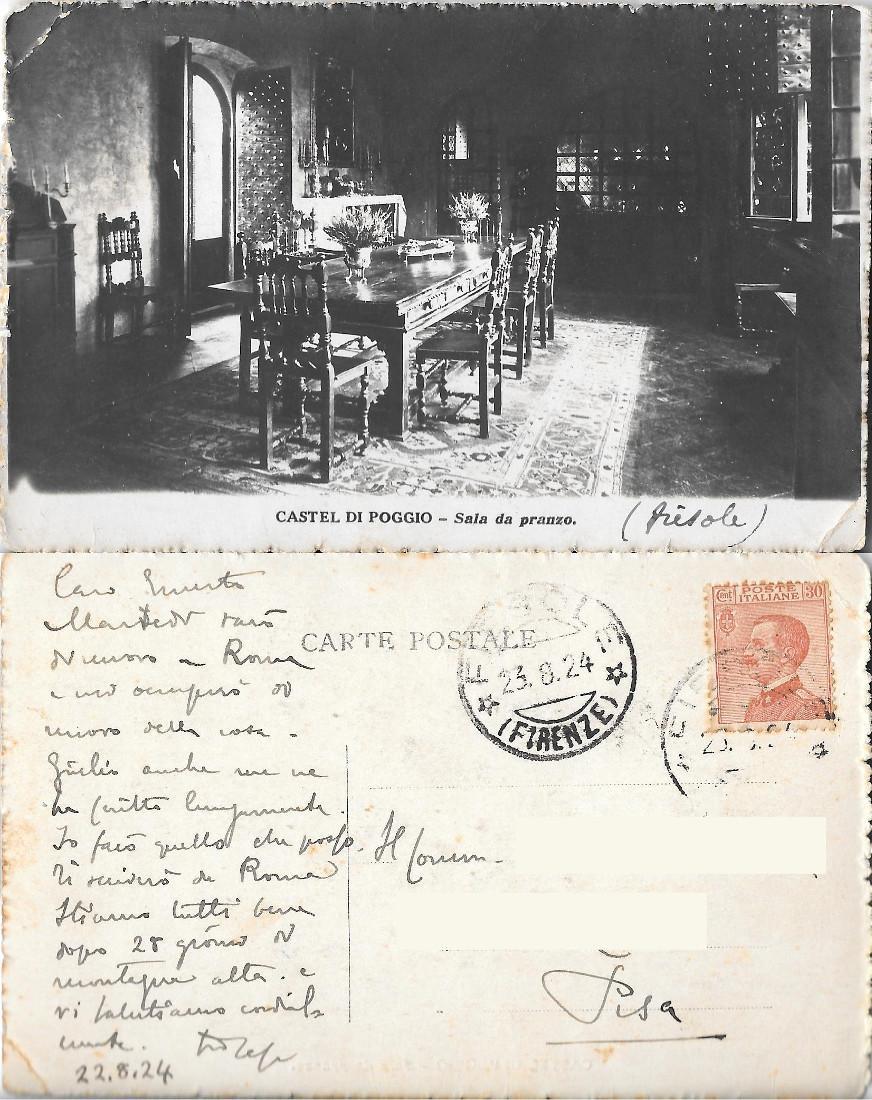 CASTEL DI POGGIO – Sala da pranzo.
(Fiesole)
Caro Ernesto
Martedì sarò
di nuovo a Roma
e mi occuperò di
nuovo della cosa.
Giulio anche me ne
ha scritto lungamente.
Io farò quello che posso.
Ti scriverò da Roma
Stiamo tutti bene
dopo 28 giorni di
montagna alta. e
vi salutiamo cordial-
mente.
22.8.24
CARTE POSTALE
FIESOLE
23.8.24
(FIRENZE)
Cent. POSTE ITALIANE 30
FIE
23.
Al Comm.
Pisa